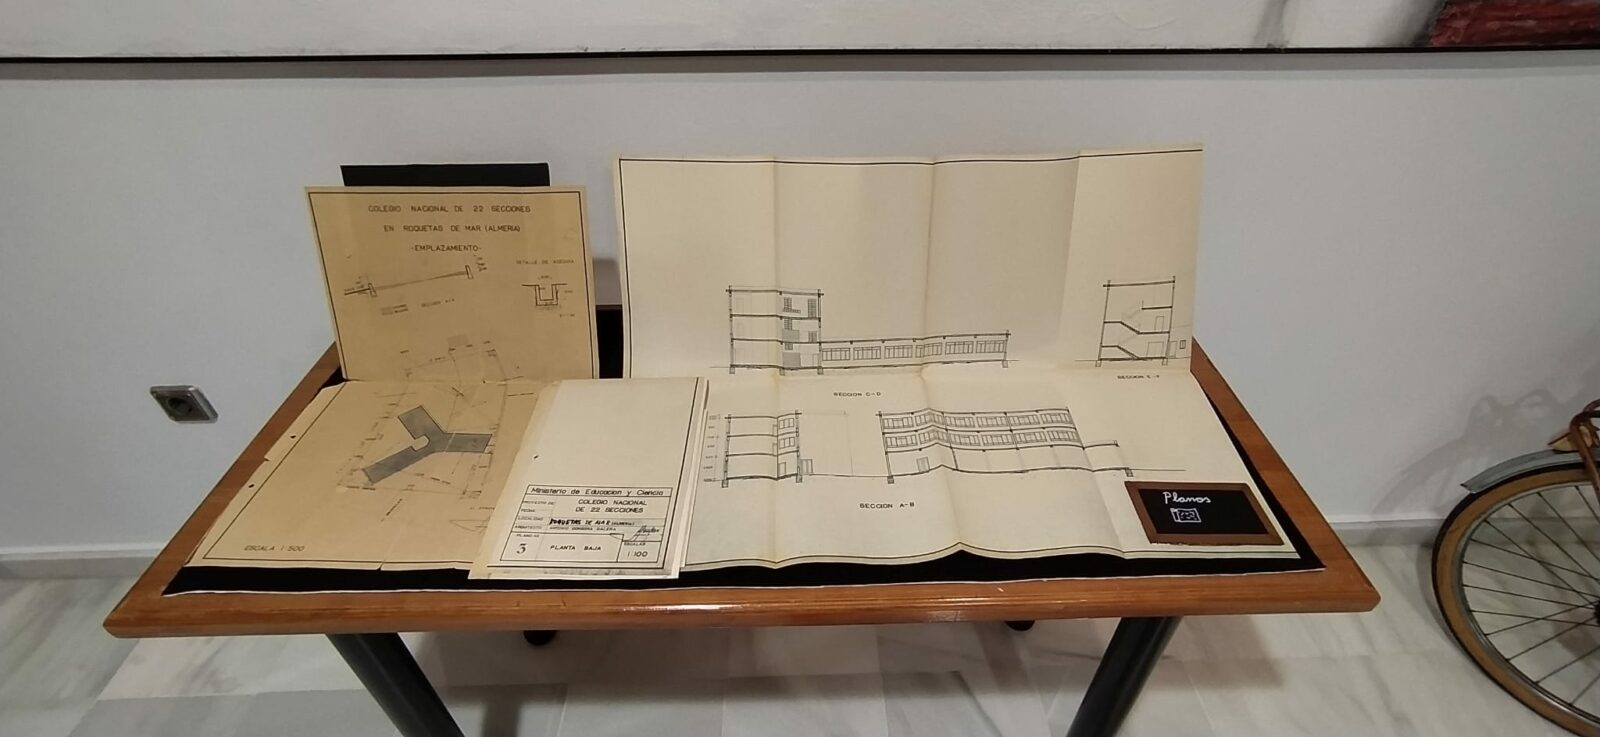 COLEGIO NACIONAL DE 22 SECCIONES
EN ROQUETAS DE MAR (ALMERIA)
-EMPLAZAMIENTO-
DETALLE DE ACEQUIA
SECCION A-A
ESCALA 1:500
Ministerio de Educacion y Ciencia
PROYECTO DE: COLEGIO NACIONAL
DE 22 SECCIONES
FECHA
LOCALIDAD ROQUETAS DE MAR (ALMERIA)
ARQUITECTO ANTONIO GONGORA GALERA
PLANO Nº
3
PLANTA BAJA
ESCALAS
1:100
SECCION C-D
SECCION E-F
SECCION A-B
Planos